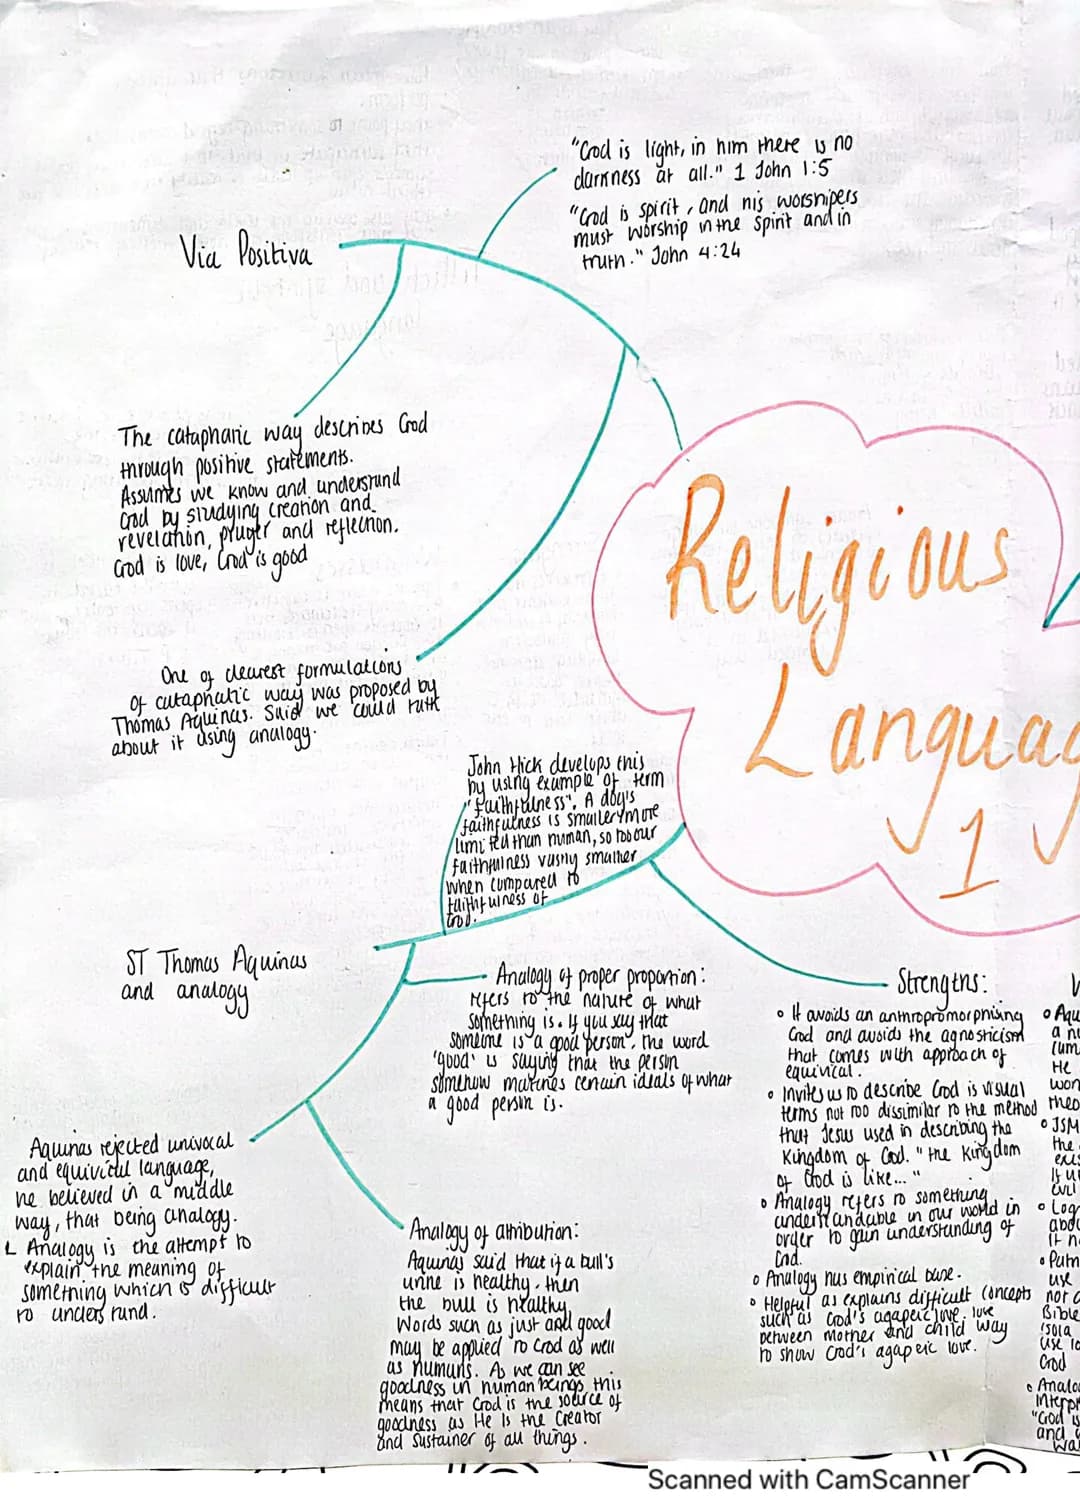 "God is light, in him there is no
darkness at all." 1 John 1:5
"God is spirit, and his worshipers
must worship in the Spirit and in
truth." John 4:24
Via Positiva
The cataphatic way describes God
through positive statements.
Assumes we know and understand
God by studying creation and
revelation, prayer and reflection.
God is love, God is good
One of clearest formulations
of cataphatic way was proposed by
Thomas Aquinas. Said we could talk
about it using analogy.
Religious
Languag
1
John Hick develops this
by using example of term
"faithfulness". A dog's
faithfulness is smaller/more
limited than human, so too our
faithfulness vastly smaller
when compared to
faithfulness of
God.
ST Thomas Aquinas
and analogy
Analogy of proper proportion:
refers to the nature of what
something is. If you say that
someone is a good person, the word
'good' is saying that the person
somehow matches certain ideals of what
a good person is.
Aquinas rejected univocal
and equivical language,
he believed in a middle
way, that being analogy.
Analogy is the attempt to
explain the meaning of
something which is difficult
to understand.
Analogy of attribution:
Aquinas said that if a bull's
urine is healthy, then
the bull is healthy.
Words such as just and good
may be applied to God as well
as humans. As we can see
goodness in human beings, this
means that God is the source of
goodness as He is the Creator
and Sustainer of all things.
Strengths:
• It avoids an anthropromorphising
God and avoids the agnosticism
that comes with approach of
equivical.
• Invites us to describe God is visual
terms not too dissimilar to the method
that Jesus used in describing the
Kingdom of God. "the Kingdom
of God is like..."
• Analogy refers to something
understandable in our world in
order to gain understanding of
God.
• Analogy has empirical base.
• Helpful as explains difficult concepts
such as God's agapeic love. love
between Mother and child way
to show God's agapeic love.
• Aqu
a n
He
won
theo
• JSM
the
evil
• Log
abo
it n
use
not
Bible
(sola
use
God
• Analo
interp
"God is
and
Scanned with CamScanner